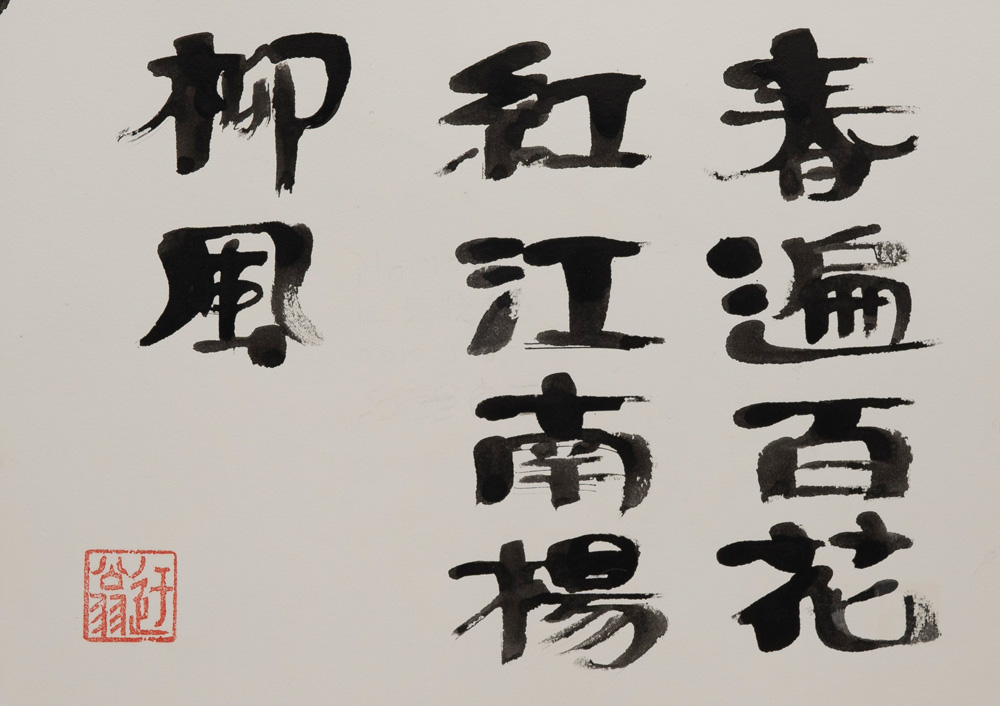 春遍百花
紅江南楊
柳風
迂翁